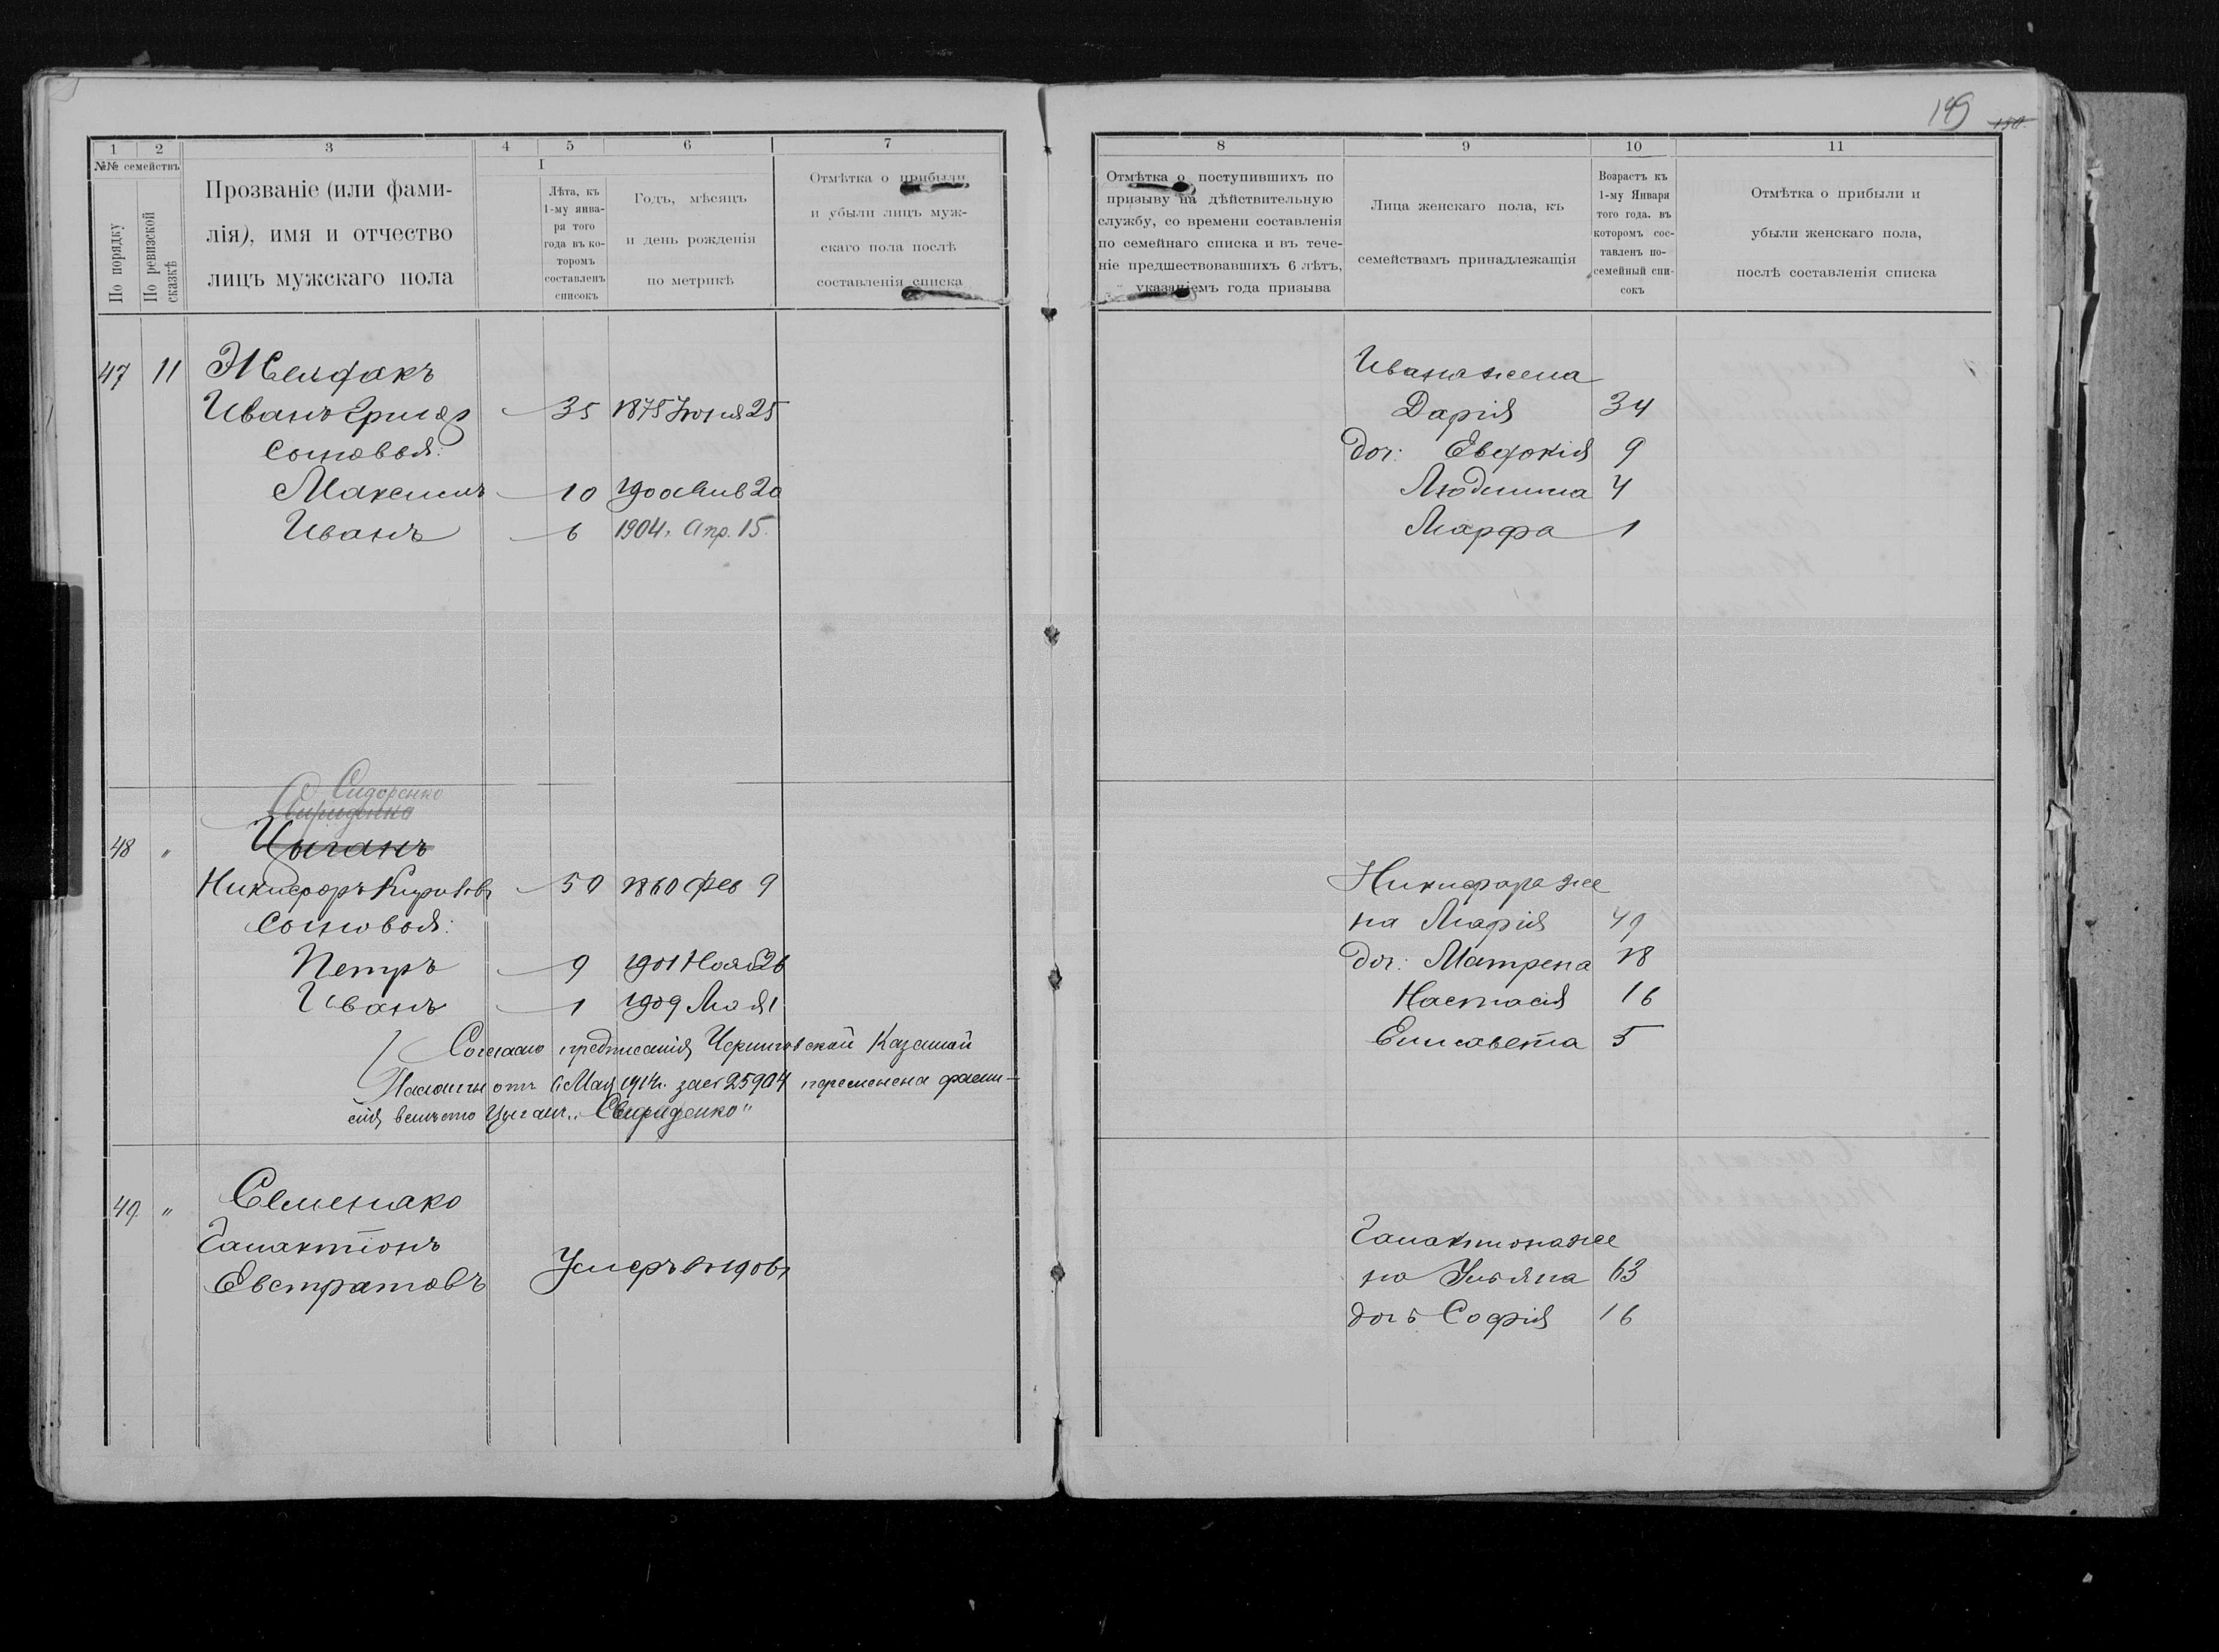 149 150
1 2 3 4 5 6 7
№№ семействъ
По порядку
По ревизской сказкѣ
Прозваніе (или фами-
лія), имя и отчество
лицъ мужскаго пола
I
Лѣта, къ
1-му янва-
ря того
года въ ко-
торомъ
составленъ
списокъ
Годъ, мѣсяцъ
и день рожденія
по метрикѣ
Отмѣтка о прибыли
и убыли лицъ муж-
скаго пола послѣ
составленія списка
8 9 10 11
Отмѣтка о поступившихъ по
призыву на дѣйствительную
службу, со времени составленія
по семейнаго списка и въ тече-
ніе предшествовавшихъ 6 лѣтъ,
указаніемъ года призыва
Лица женскаго пола, къ
семействамъ принадлежащія
Возрастъ къ
1-му Января
того года. въ
которомъ сос-
тавленъ по-
семейный спи-
сокъ
Отмѣтка о прибыли и
убыли женскаго пола,
послѣ составленія списка
47 11
Иванъ 35 1875 Іюня 25
Сыновья:
Максимъ 10 1900 Янв 20
Иванъ 6 1904. Апр. 15.
Ивана жена
Дарія 34
доч: Евдокія 9
Людмила 4
Марфа 1
Сидоренко
Свириденко
48 " Цыганъ
Никифоръ 50 1860 фев 9
Сыновья:
Петръ 9 1901 Нояб 26
Иванъ 1 1909 Мая 1
Согласно предписанія Черниговской Казенной
Палаты отъ 6 Мая 1914г. за № 25904 переменена фами-
лія вмѣсто Цыганъ „Свириденко"
Никифора же
на Марія 49
доч: Матрена 18
Настасія 16
Елисавета 5
49 " Семенако
Галактіонъ
Евстратовъ Умеръ въ 1909г
Галактіона же
на Ульяна 63
дочь Софія 16